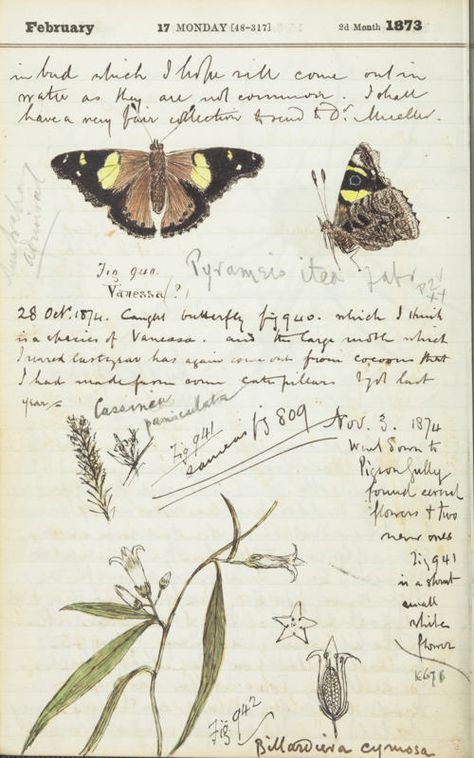 February
17 MONDAY [48-317]
2d Month 1873
in bud which I hope will come out in
water as they are not common. I shall
have a very fair collection to send to Dr. Mueller.
Australian
admiral
Fig 940.
Vanessa (?)
Pyrameis itea Fabr
28 Oct. 1874. Caught butterfly fig 940. which I think
is a species of Vanessa. and the large moth which
I reared last year has again come out from cocoons that
I had made from some caterpillars I got last
year
Cassinea
paniculata
Fig 941
same as fig 809
Nov. 3. 1874
Went down to
Pigeon Gully
found several
flowers & two
new ones
Fig 941
is a
small
white
flower
Fig 942
Billardiera cymosa